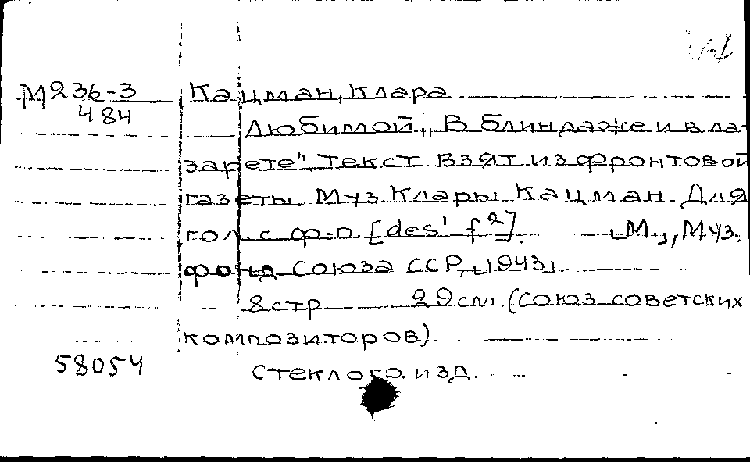 М236-3 Кацман, Клара
484
Любимой „В блиндаже и в ла-
зарете" Текст взят из фронтовой
газеты. Муз. Клары Кацман. Для
гол. с ф-п [des' f²]. М., Муз.
фонд Союза ССР, 1943.
8 стр 29 см. (Союз советских
композиторов).
58054 Стеклогр. изд.